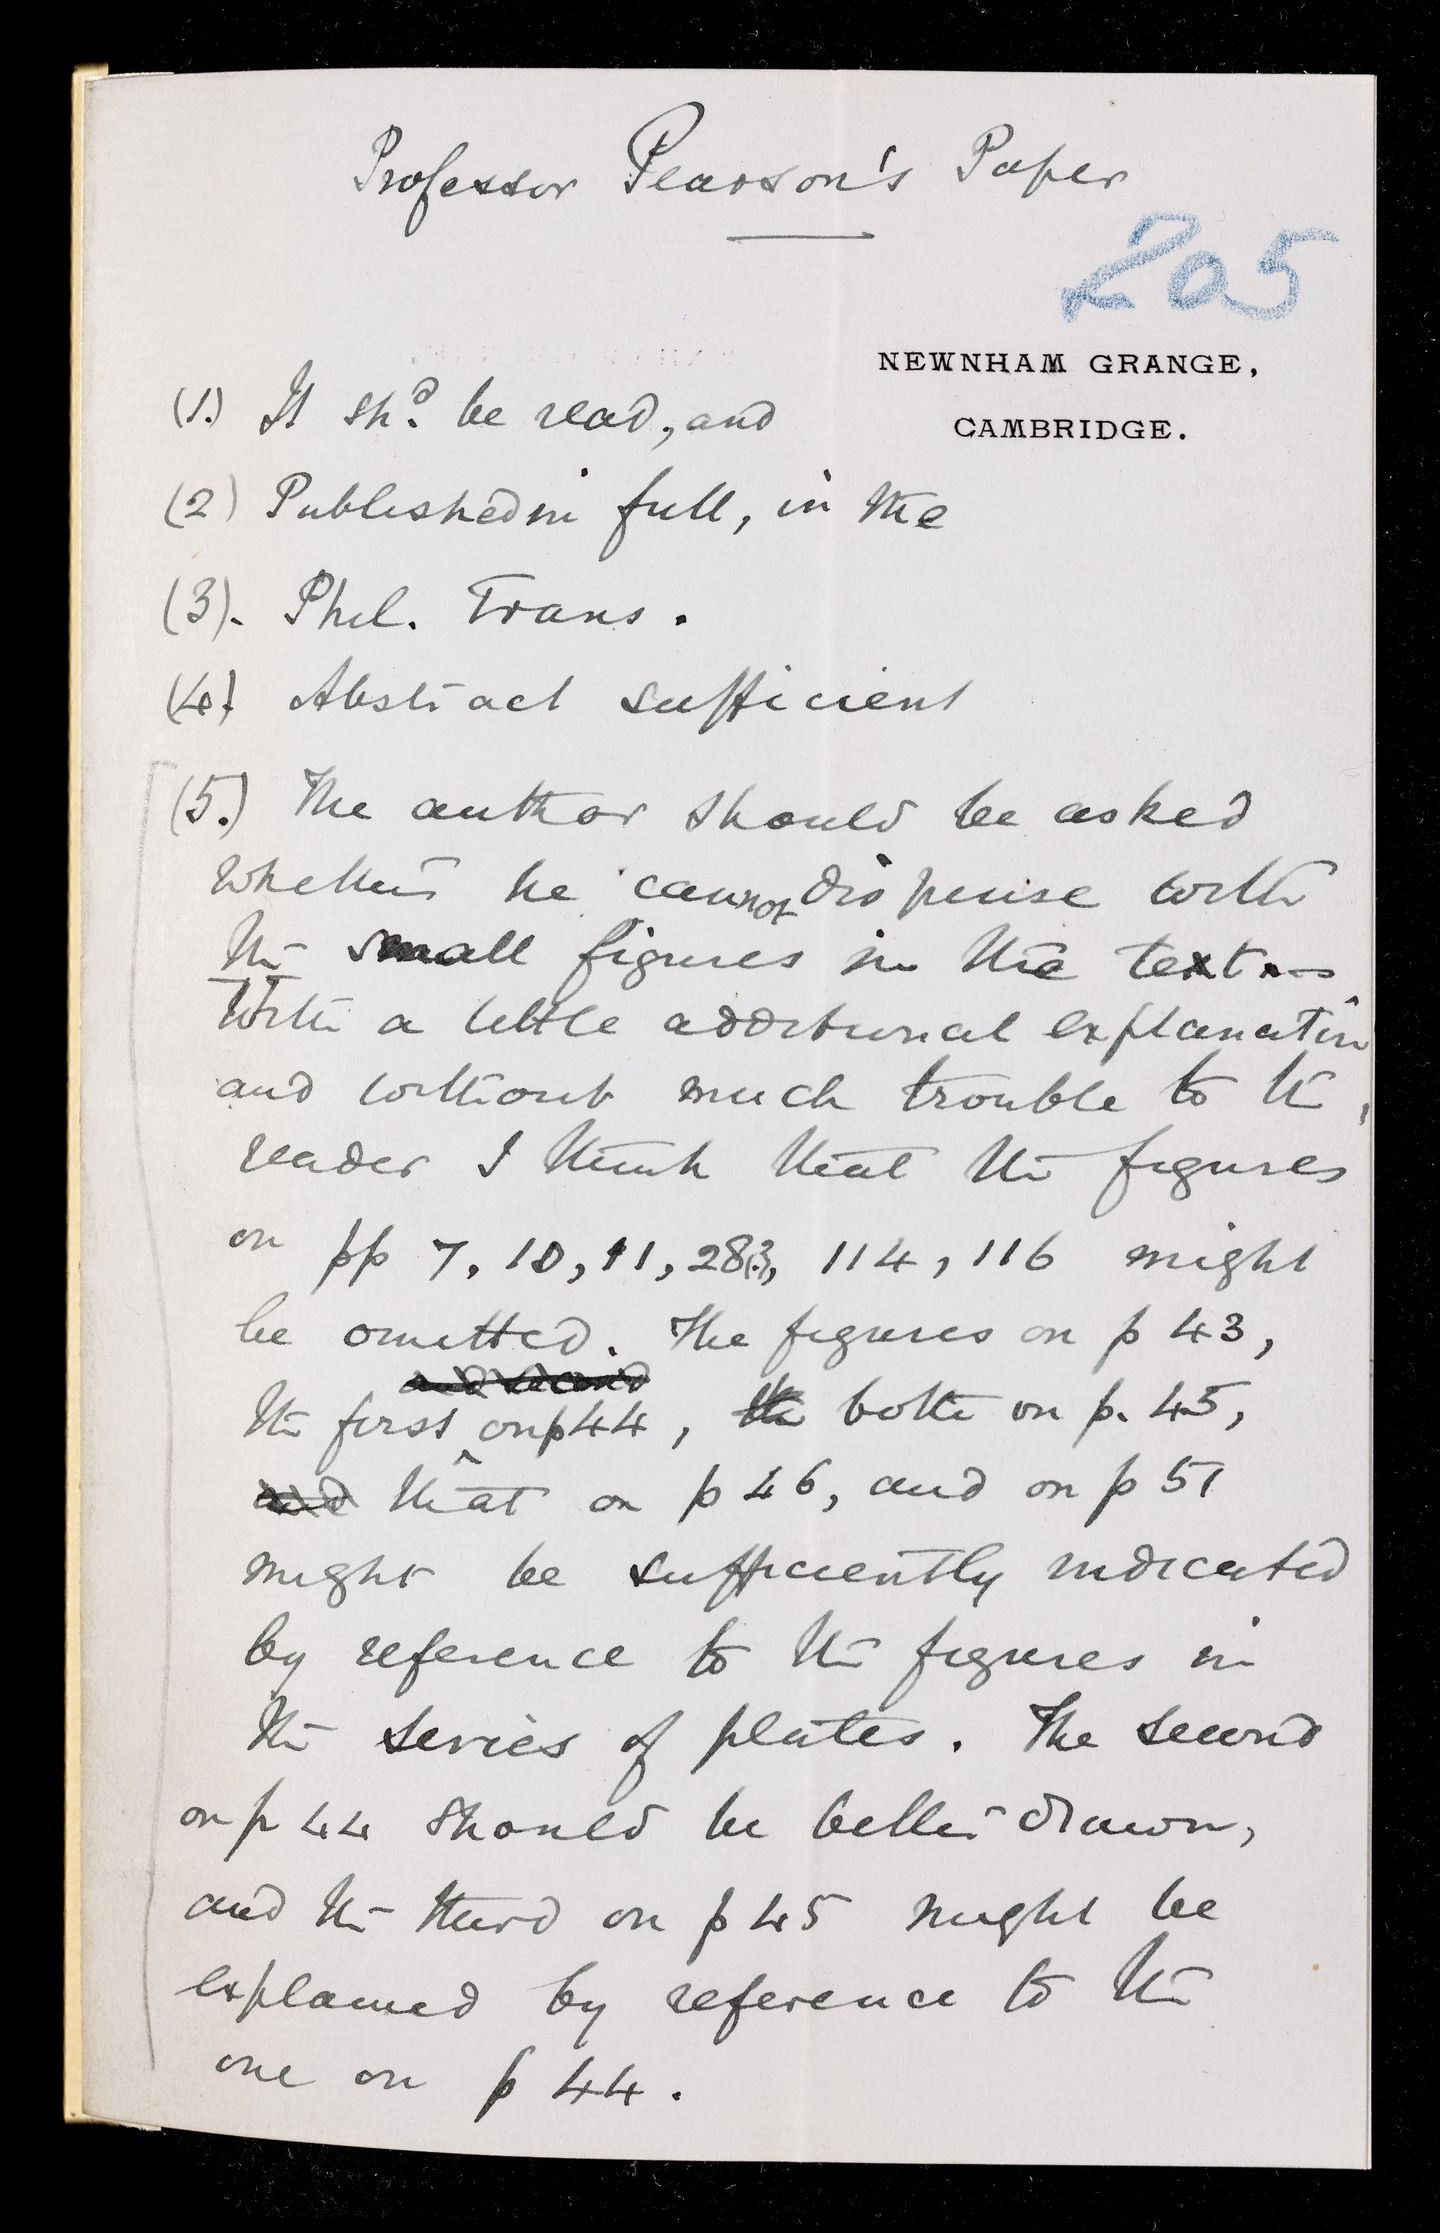 Professor Pearson's Paper
205
NEWNHAM GRANGE,
CAMBRIDGE.
(1.) It shd. be read, and
(2) Published in full, in the
(3). Phil. Trans.
(4) Abstract sufficient
(5.) The author should be asked
whether he cannot dispense with
the small figures in the text.—
With a little additional explanation
and without much trouble to the
reader I think that the figures
on pp 7, 10, 11, 28(3), 114, 116 might
be omitted. The figures on p 43,
and second
the first on p 44, the both on p. 45,
and that on p 46, and on p 51
might be sufficiently indicated
by reference to the figures in
the series of plates. The second
on p 44 should be better drawn,
and the third on p 45 might be
explained by reference to the
one on p 44.